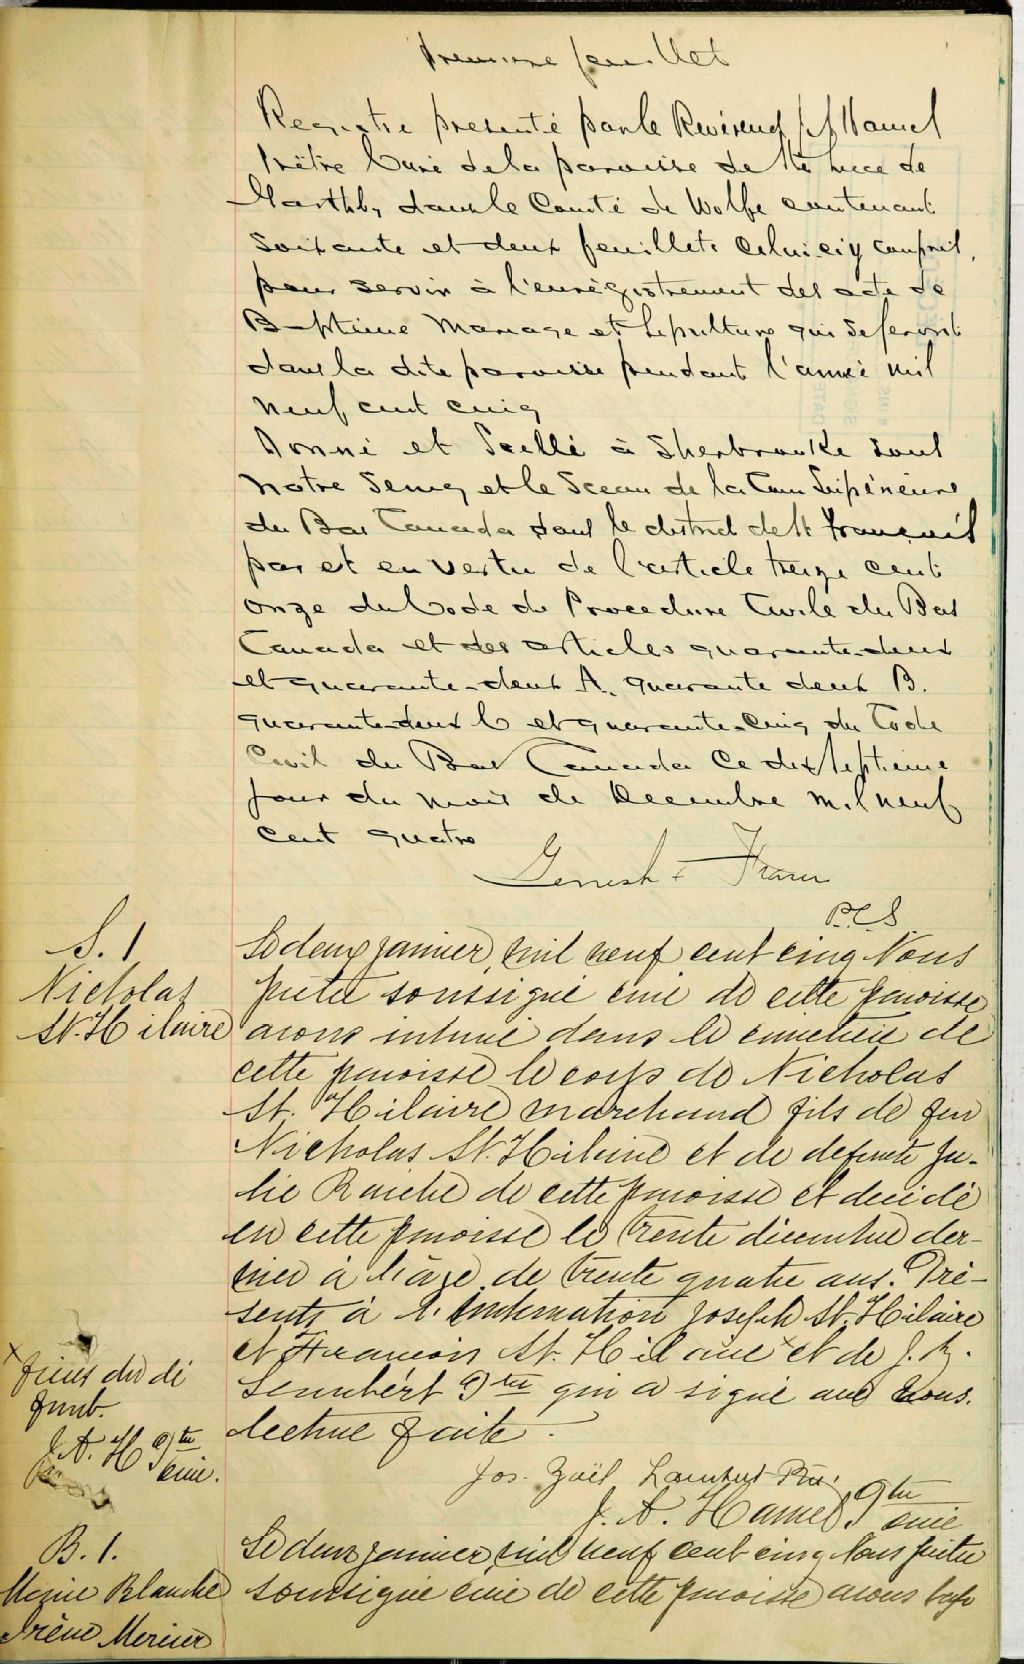 Premier feuillet
Registre presenté par le Révérend J A Hamel
Prêtre Curé de la paroisse de Ste Luce de
Garthby dans le Comté de Wolfe contenant
Soixante et deux feuillets celui-ciy compris,
pour servir à l'enrégistrement des acte de
Baptême Mariage et Sepulture qui se feront
dans la dite paroisse pendant l'année mil
neuf cent cinq
Donné et Scellé à Sherbrooke sous
notre Seing et le Sceau de la Cour Supérieure
du Bas Canada dans le district de St François
par et en vertu de l'article treize cent
onze du Code de Procedure Civile du Bas
Canada et des articles quarante-deux
et quarante-deux A. quarante deux B.
quarante-deux C et quarante-cinq du Code
Civil du Bas Canada Ce dix septieme
jour du mois de Decembre mil neuf
cent quatre
P.C.S
S. 1
Nicholas
St. Hilaire
Le deux janvier, mil neuf cent cinq Nous
prêtre soussigné curé de cette paroisse
avons inhumé dans le cimetière de
cette paroisse le corps de Nicholas
St. Hilaire marchand fils de feu
Nicholas St. Hilaire et de defunte Ju-
lie de cette paroisse et décédé
en cette paroisse le trente décembre der-
nier à l'âge de trente quatre ans. Pré-
sents à l'inhumation Joseph St. Hilaire
et François St. Hilaire x et de J. Z.
Lambért Ptre qui a signé avec nous.
lecture faite.
x frères du dé
funt.
J. A. H Ptre
curé.
Jos. Zoël Lambert Ptre
J. A. Hamel Ptre
curé
B. 1.
Marie Blanche
Irène Mercier
Le deux janvier, mil neuf cent cinq Nous prêtre
soussigné curé de cette paroisse avons bap